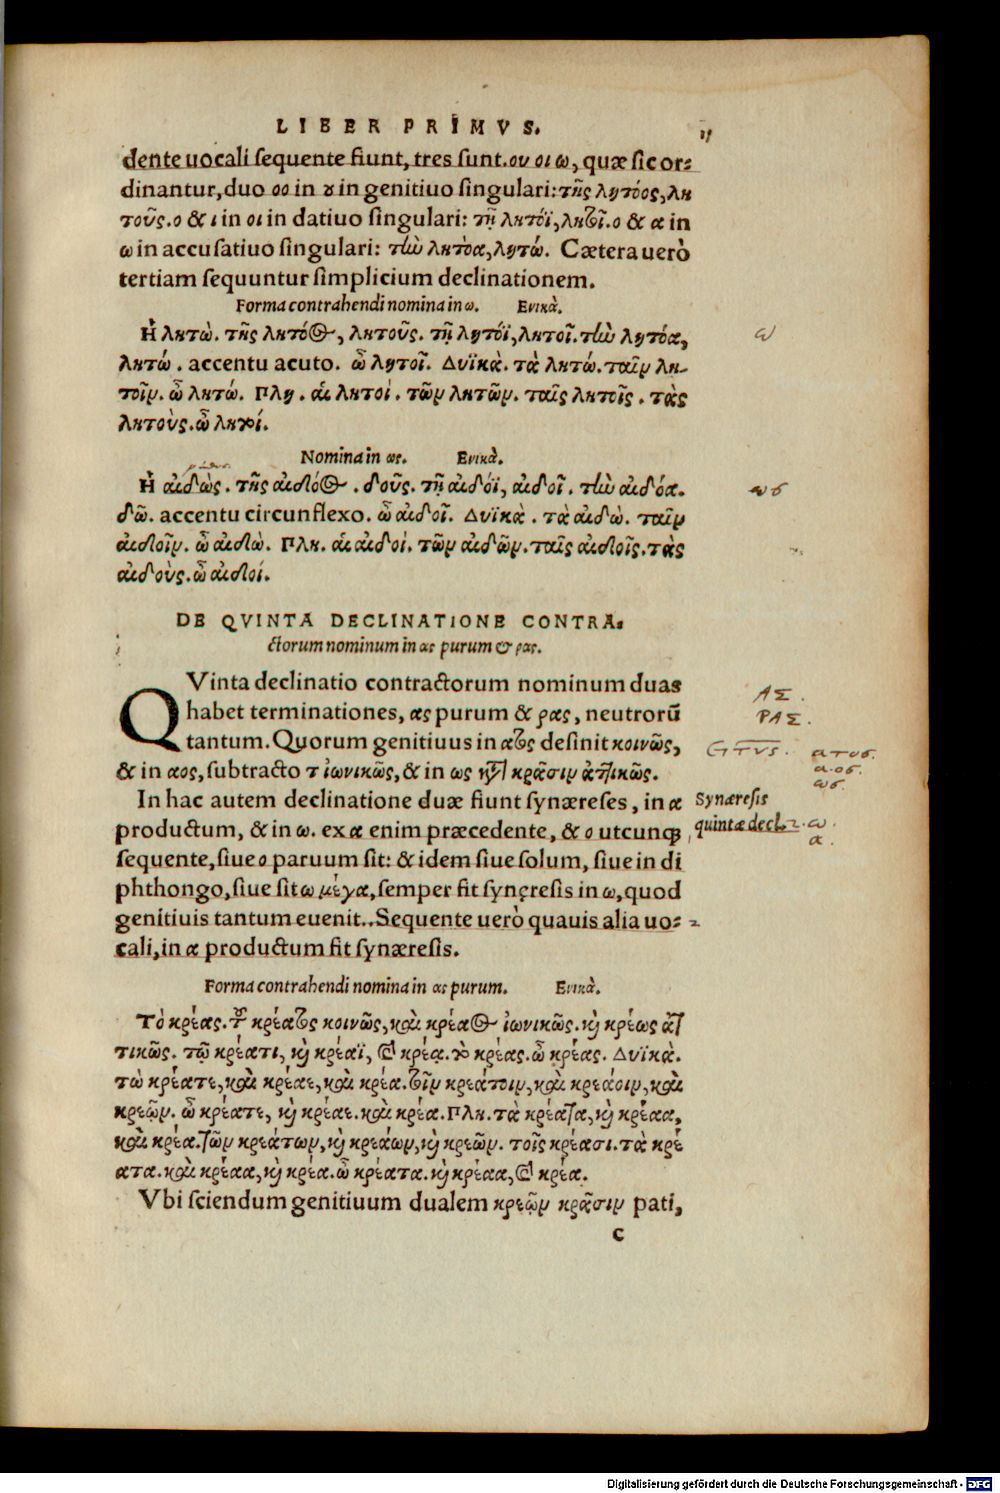 LIBER PRIMVS.
dente uocali sequente fiunt, tres sunt. ου οι ω, quæ sic or-
dinantur, duo οο in ȣ in genitiuo singulari: τῆς λητόος, λη
τοῦς. ο & ι in οι in datiuo singulari: τῇ λητόϊ, λητοῖ. ο & α in
ω in accusatiuo singulari: τὴν λητόα, λητώ. Cætera uerò
tertiam sequuntur simplicium declinationem.
Forma contrahendi nomina in ω. Ενικὰ.
Ἡ λητὼ. τῆς λητόος, λητοῦς. τῇ λητόϊ, λητοῖ. τὴν λητόα,
λητώ. accentu acuto. ὦ λητοῖ. Δυϊκὰ. τὰ λητώ. ταῖν λη-
τοῖν. ὦ λητώ. Πλη. αἱ λητοί. τῶν λητῶν. ταῖς λητοῖς. τὰς
λητοὺς. ὦ λητοί.
Nomina in ως. Ενικὰ.
Ἡ αἰδὼς. τῆς αἰδόος. δοῦς. τῇ αἰδόϊ, αἰδοῖ. τὴν αἰδόα.
δῶ. accentu circunflexo. ὦ αἰδοῖ. Δυϊκὰ. τὰ αἰδὼ. ταῖν
αἰδοῖν. ὦ αἰδὼ. Πλη. αἱ αἰδοί. τῶν αἰδῶν. ταῖς αἰδοῖς. τὰς
αἰδοὺς. ὦ αἰδοί.
DE QVINTA DECLINATIONE CONTRA-
ctorum nominum in ας purum & ρας.
QVinta declinatio contractorum nominum duas
habet terminationes, ας purum & ρας, neutrorū
tantum. Quorum genitiuus in ατος desinit κοινῶς,
& in αος, subtracto τ ἰωνικῶς, & in ως κατὰ κρᾶσιν ἀττικῶς.
In hac autem declinatione duæ fiunt synæreses, in α
productum, & in ω. ex α enim præcedente, & ο utcunq;
sequente, siue ο paruum sit: & idem siue solum, siue in di
phthongo, siue sit ω μέγα, semper fit synęresis in ω, quod
genitiuis tantum euenit.. Sequente uerò quauis alia uo-
cali, in α productum fit synæresis.
Synæresis
quintæ decl.
ω
ως
ΑΣ.
ΡΑΣ.
GTVS. ατος.
αος.
ως.
2. ω.
α.
Forma contrahendi nomina in ας purum. Ενικὰ.
Τὸ κρέας. τοῦ κρέατος κοινῶς, καὶ κρέαος ἰωνικῶς. καὶ κρέως ἀτ
τικῶς. τῷ κρέατι, καὶ κρέαϊ, & κρέᾳ. τὸ κρέας. ὦ κρέας. Δυϊκὰ.
τὼ κρέατε, καὶ κρέαε, καὶ κρέα. τοῖν κρεάτοιν, καὶ κρεάοιν, καὶ
κρεῷν. ὦ κρέατε, καὶ κρέαε. καὶ κρέα. Πλη. τὰ κρέατα, καὶ κρέαα,
καὶ κρέα. τῶν κρεάτων, καὶ κρεάων, καὶ κρεῶν. τοῖς κρέασι. τὰ κρέ
ατα. καὶ κρέαα, καὶ κρέα. ὦ κρέατα. καὶ κρέαα, & κρέα.
Vbi sciendum genitiuum dualem κρεῷν κρᾶσιν pati,
c
Digitalisierung gefördert durch die Deutsche Forschungsgemeinschaft - DFG